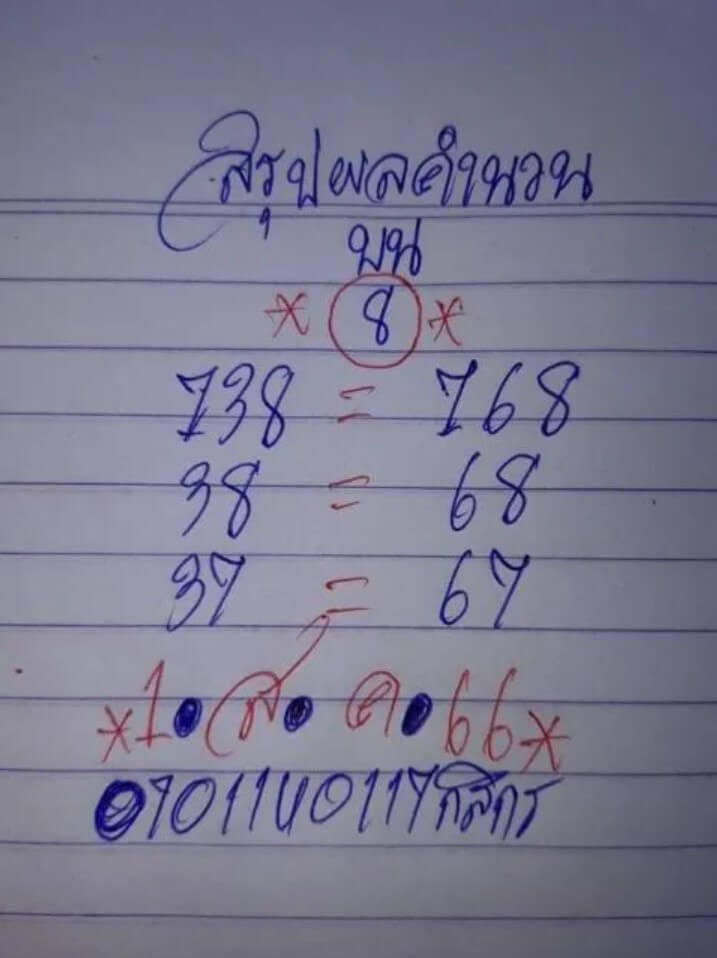 สรุปผลคำนวน
บน
* 8 *
738 = 768
38 = 68
37 = 67
*1.ส.ค.66*
กสิกร